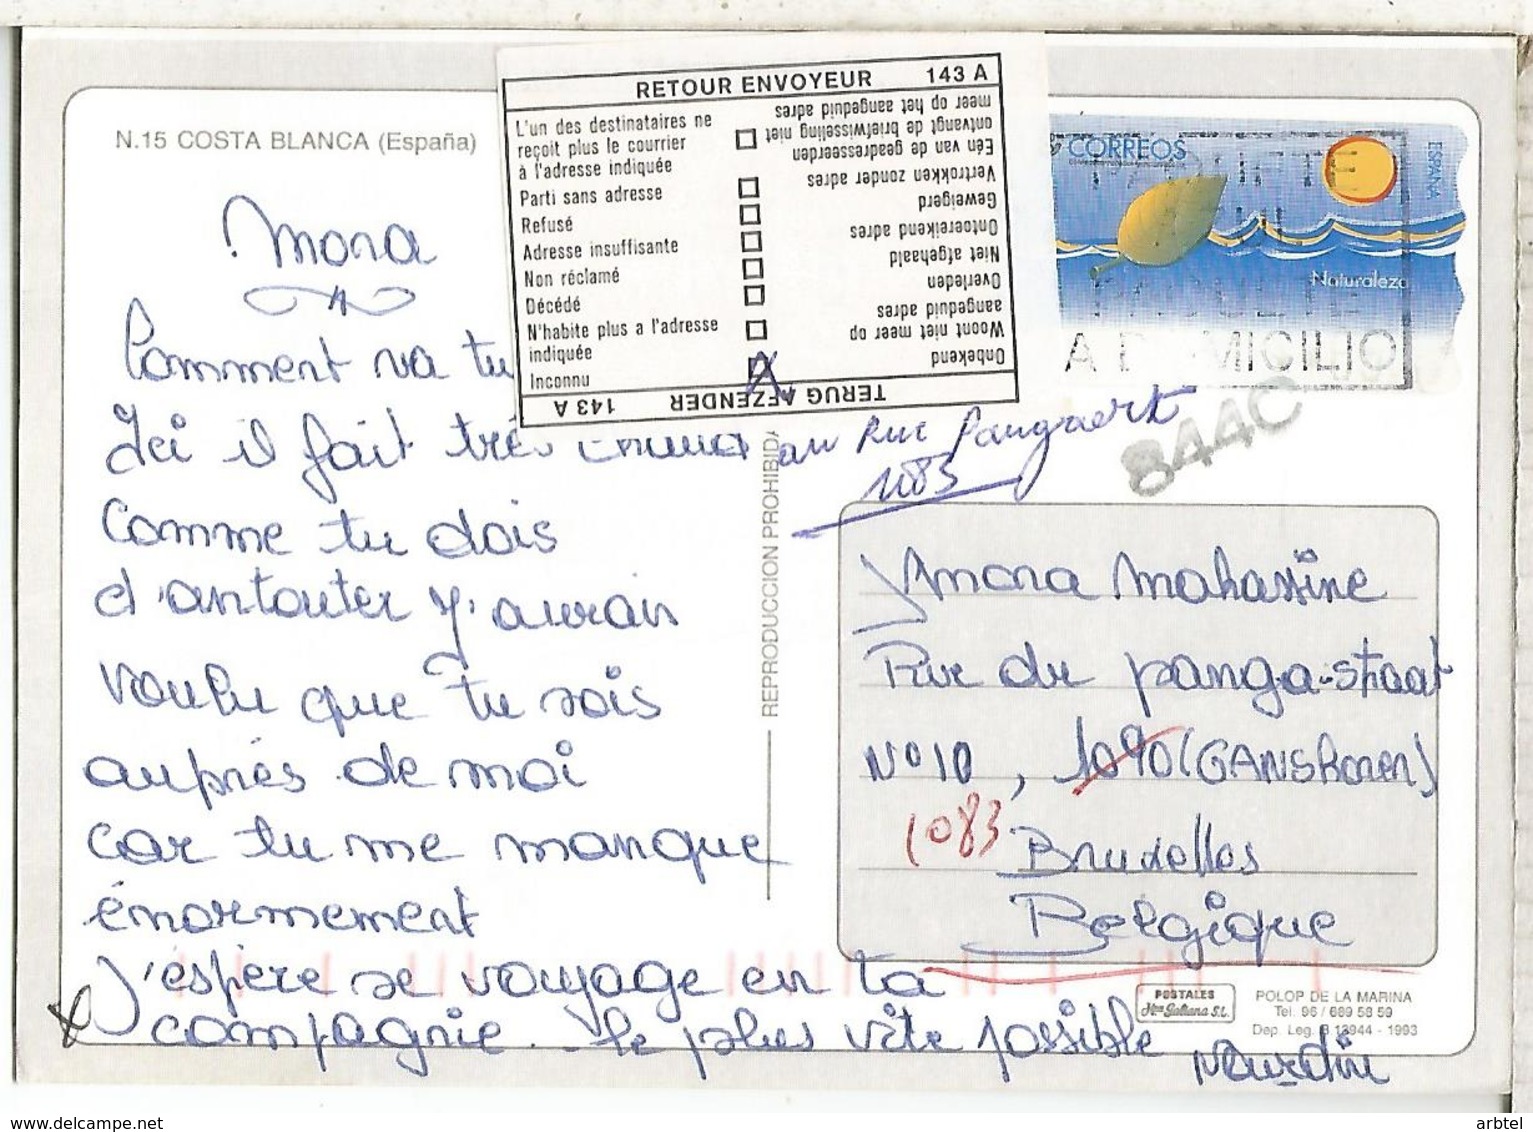 RETOUR ENVOYEUR 143 A
L'un des destinataires ne
reçoit plus le courrier
à l'adresse indiquée
Parti sans adresse
Refusé
Adresse insuffisante
Non réclamé
Décédé
N'habite plus a l'adresse
indiquée
Inconnu
TERUG AFZENDER 143 A
Onbekend
Woont niet meer op
aangeduid adres
Overleden
Niet afgehaald
Ontoereikend adres
Geweigerd
Vertrokken zonder adres
Eén van de geadresseerden
ontvangt de briefwisseling niet
meer op het aangeduid adres
CORREOS
ESPAÑA
Naturaleza
A D MICILIO
8440
N.15 COSTA BLANCA (España)
Mona
Comment va tu
Ici il fait très
comme tu dois
d'antouter j'aurais
voulu que tu sois
auprès de moi
car tu me manque
énormement
J'espère se voyage en ta
compagnie. le plus vite possible
REPRODUCCION PROHIBIDA
au Rue Pangaert
1083
Mona Mahassine
Rue du panga-staat
N° 10, 1090 (GANSHoren)
1083 Bruxelles
Belgique
POSTALES
Hnos Galiana S.L.
POLOP DE LA MARINA
Tel. 96 / 689 58 59
Dep. Leg. B 13944 - 1993
Nourdin
www.delcampe.net
arbtel